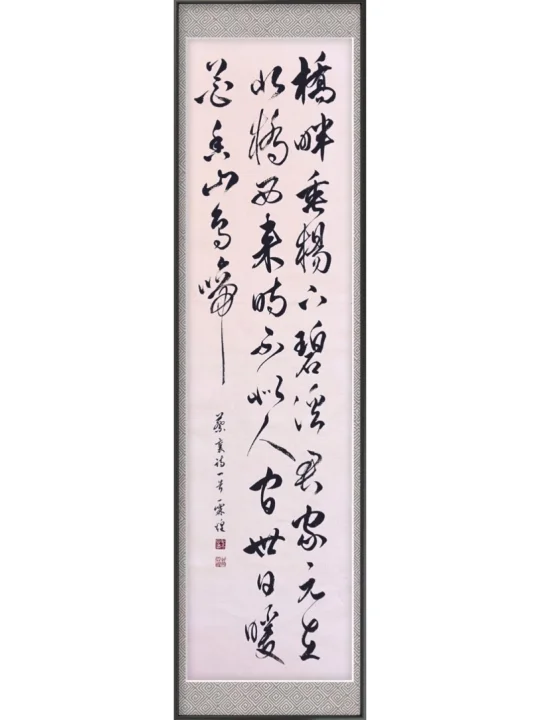 橋畔垂楊下碧溪君家元在
北橋西來時不似人間世日暖
花香山鳥啼
蔡襄詩一首霖